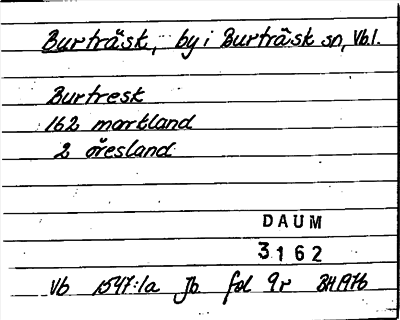 Burträsk, by i Burträsk sn, Vb.l.
Burtresk
162 markland
2 öresland
DAUM
3162
Vb 1547:1a Jb fol 9r BH1976